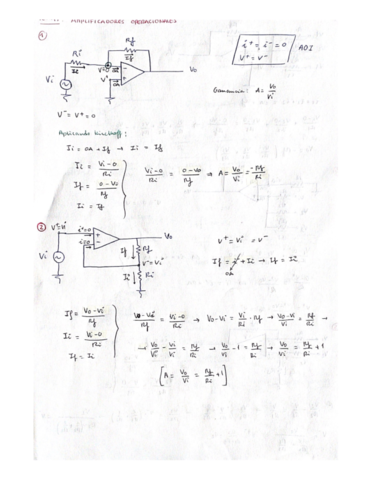 AMPLIFICADORES OPERACIONALES
①
Rf
If
i⁺ = i⁻ = 0
V⁺ = V⁻
AOI
Ri
Ii
V⁻=0
0A
V⁺
0A
Vo
Vi
Ganancia: A = Vo/Vi
V⁻ = V⁺ = 0
Aplicando Kirchoff:
Ii = 0A + If → Ii = If
Ii = (Vi-0)/Ri
If = (0-Vo)/Rf
Ii = If
(Vi-0)/Ri = (0-Vo)/Rf → A = Vo/Vi = -Rf/Ri
②
V⁺=Vi
i⁺=0
i⁻=0
Vo
If
Rf
V⁻=Vi
Ii
Ri
Vi
V⁺ = Vi = V⁻
If = i⁻ + Ii → If = Ii
0A
If = (Vo-Vi)/Rf
Ii = (Vi-0)/Ri
If = Ii
(Vo-Vi)/Rf = (Vi-0)/Ri → Vo-Vi = Vi/Ri · Rf → (Vo-Vi)/Vi = Rf/Ri →
→ Vo/Vi - Vi/Vi = Rf/Ri → Vo/Vi - 1 = Rf/Ri → Vo/Vi = Rf/Ri + 1
[A = Vo/Vi = Rf/Ri + 1]